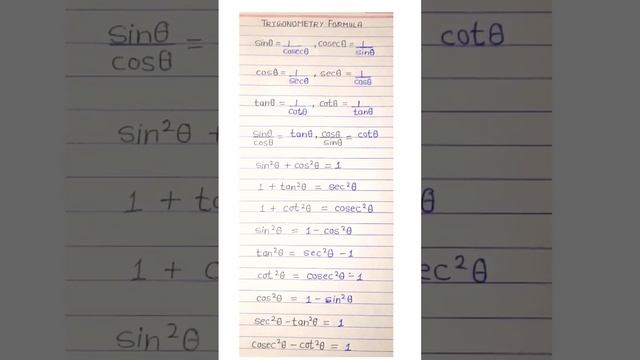 TRIGONOMETRY FORMULA
sinθ = 1/cosecθ , cosecθ = 1/sinθ
cosθ = 1/secθ , secθ = 1/cosθ
tanθ = 1/cotθ , cotθ = 1/tanθ
sinθ/cosθ = tanθ, cosθ/sinθ = cotθ
sin²θ + cos²θ = 1
1 + tan²θ = sec²θ
1 + cot²θ = cosec²θ
sin²θ = 1 - cos²θ
tan²θ = sec²θ - 1
cot²θ = cosec²θ - 1
cos²θ = 1 - sin²θ
sec²θ - tan²θ = 1
cosec²θ - cot²θ = 1
sinθ/cosθ =
cotθ
sin²θ +
1 + ta
θ
1 + c
ec²θ
sin²θ